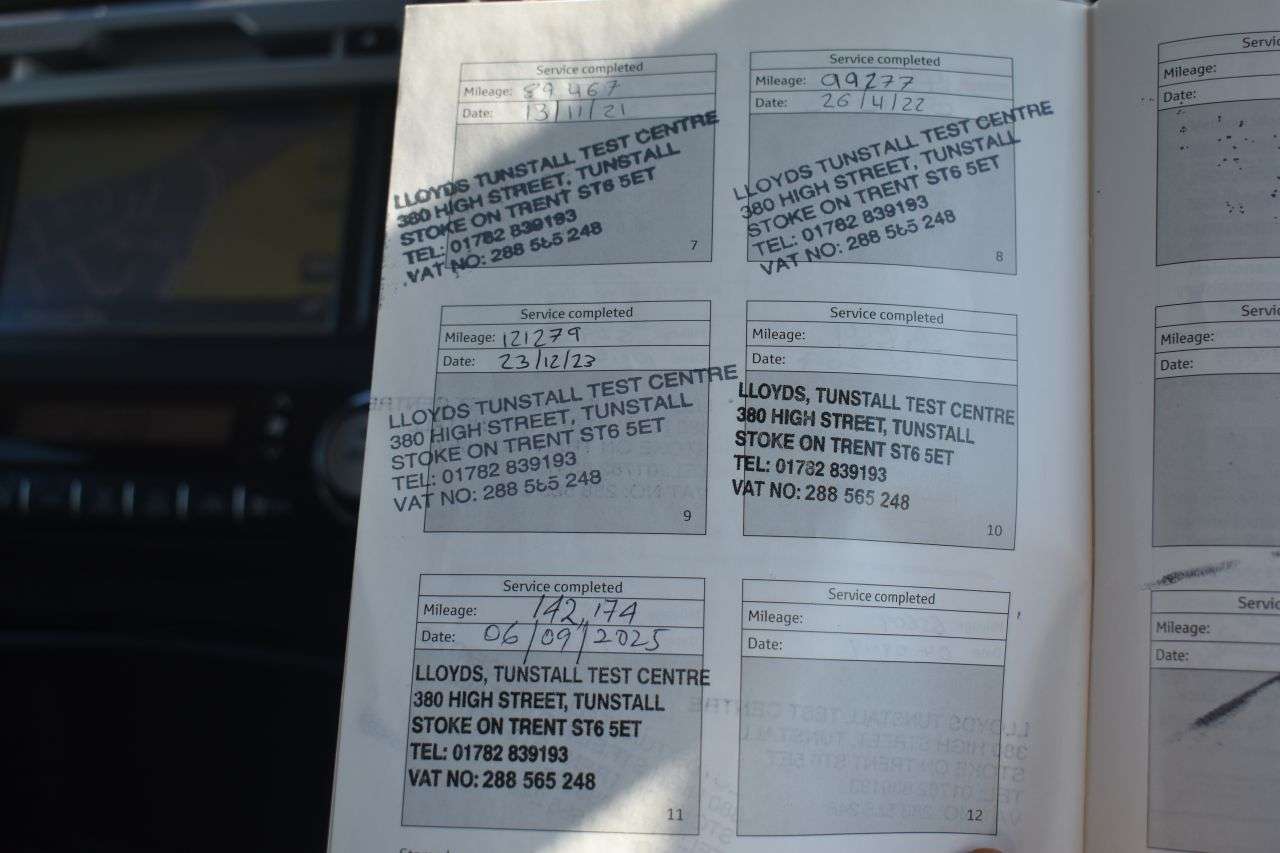 Service completed
Mileage: 89467
Date: 13/11/21
LLOYDS TUNSTALL TEST CENTRE
380 HIGH STREET, TUNSTALL
STOKE ON TRENT ST6 5ET
TEL: 01782 839193
VAT NO: 288 565 248
7
Service completed
Mileage: 99277
Date: 26/4/22
LLOYDS TUNSTALL TEST CENTRE
380 HIGH STREET, TUNSTALL
STOKE ON TRENT ST6 5ET
TEL: 01782 839193
VAT NO: 288 565 248
8
Service completed
Mileage: 121279
Date: 23/12/23
LLOYDS TUNSTALL TEST CENTRE
380 HIGH STREET, TUNSTALL
STOKE ON TRENT ST6 5ET
TEL: 01782 839193
VAT NO: 288 565 248
9
Service completed
Mileage:
Date:
LLOYDS, TUNSTALL TEST CENTRE
380 HIGH STREET, TUNSTALL
STOKE ON TRENT ST6 5ET
TEL: 01782 839193
VAT NO: 288 565 248
10
Service completed
Mileage: 142,174
Date: 06/09/2025
LLOYDS, TUNSTALL TEST CENTRE
380 HIGH STREET, TUNSTALL
STOKE ON TRENT ST6 5ET
TEL: 01782 839193
VAT NO: 288 565 248
11
Service completed
Mileage:
Date:
12
Mileage:
Date:
Mileage:
Date:
Mileage:
Date: